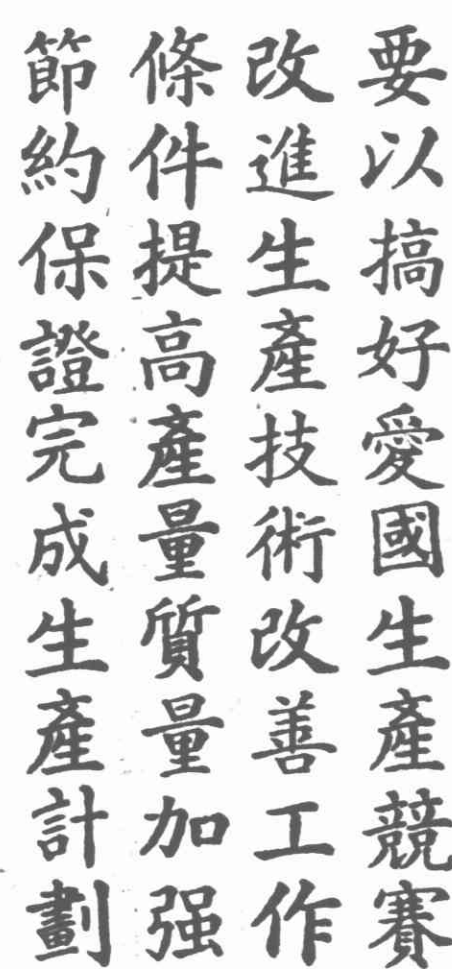 要以搞好愛國生產競賽
改進生產技術改善工作
條件提高產量質量加强
節約保證完成生產計劃